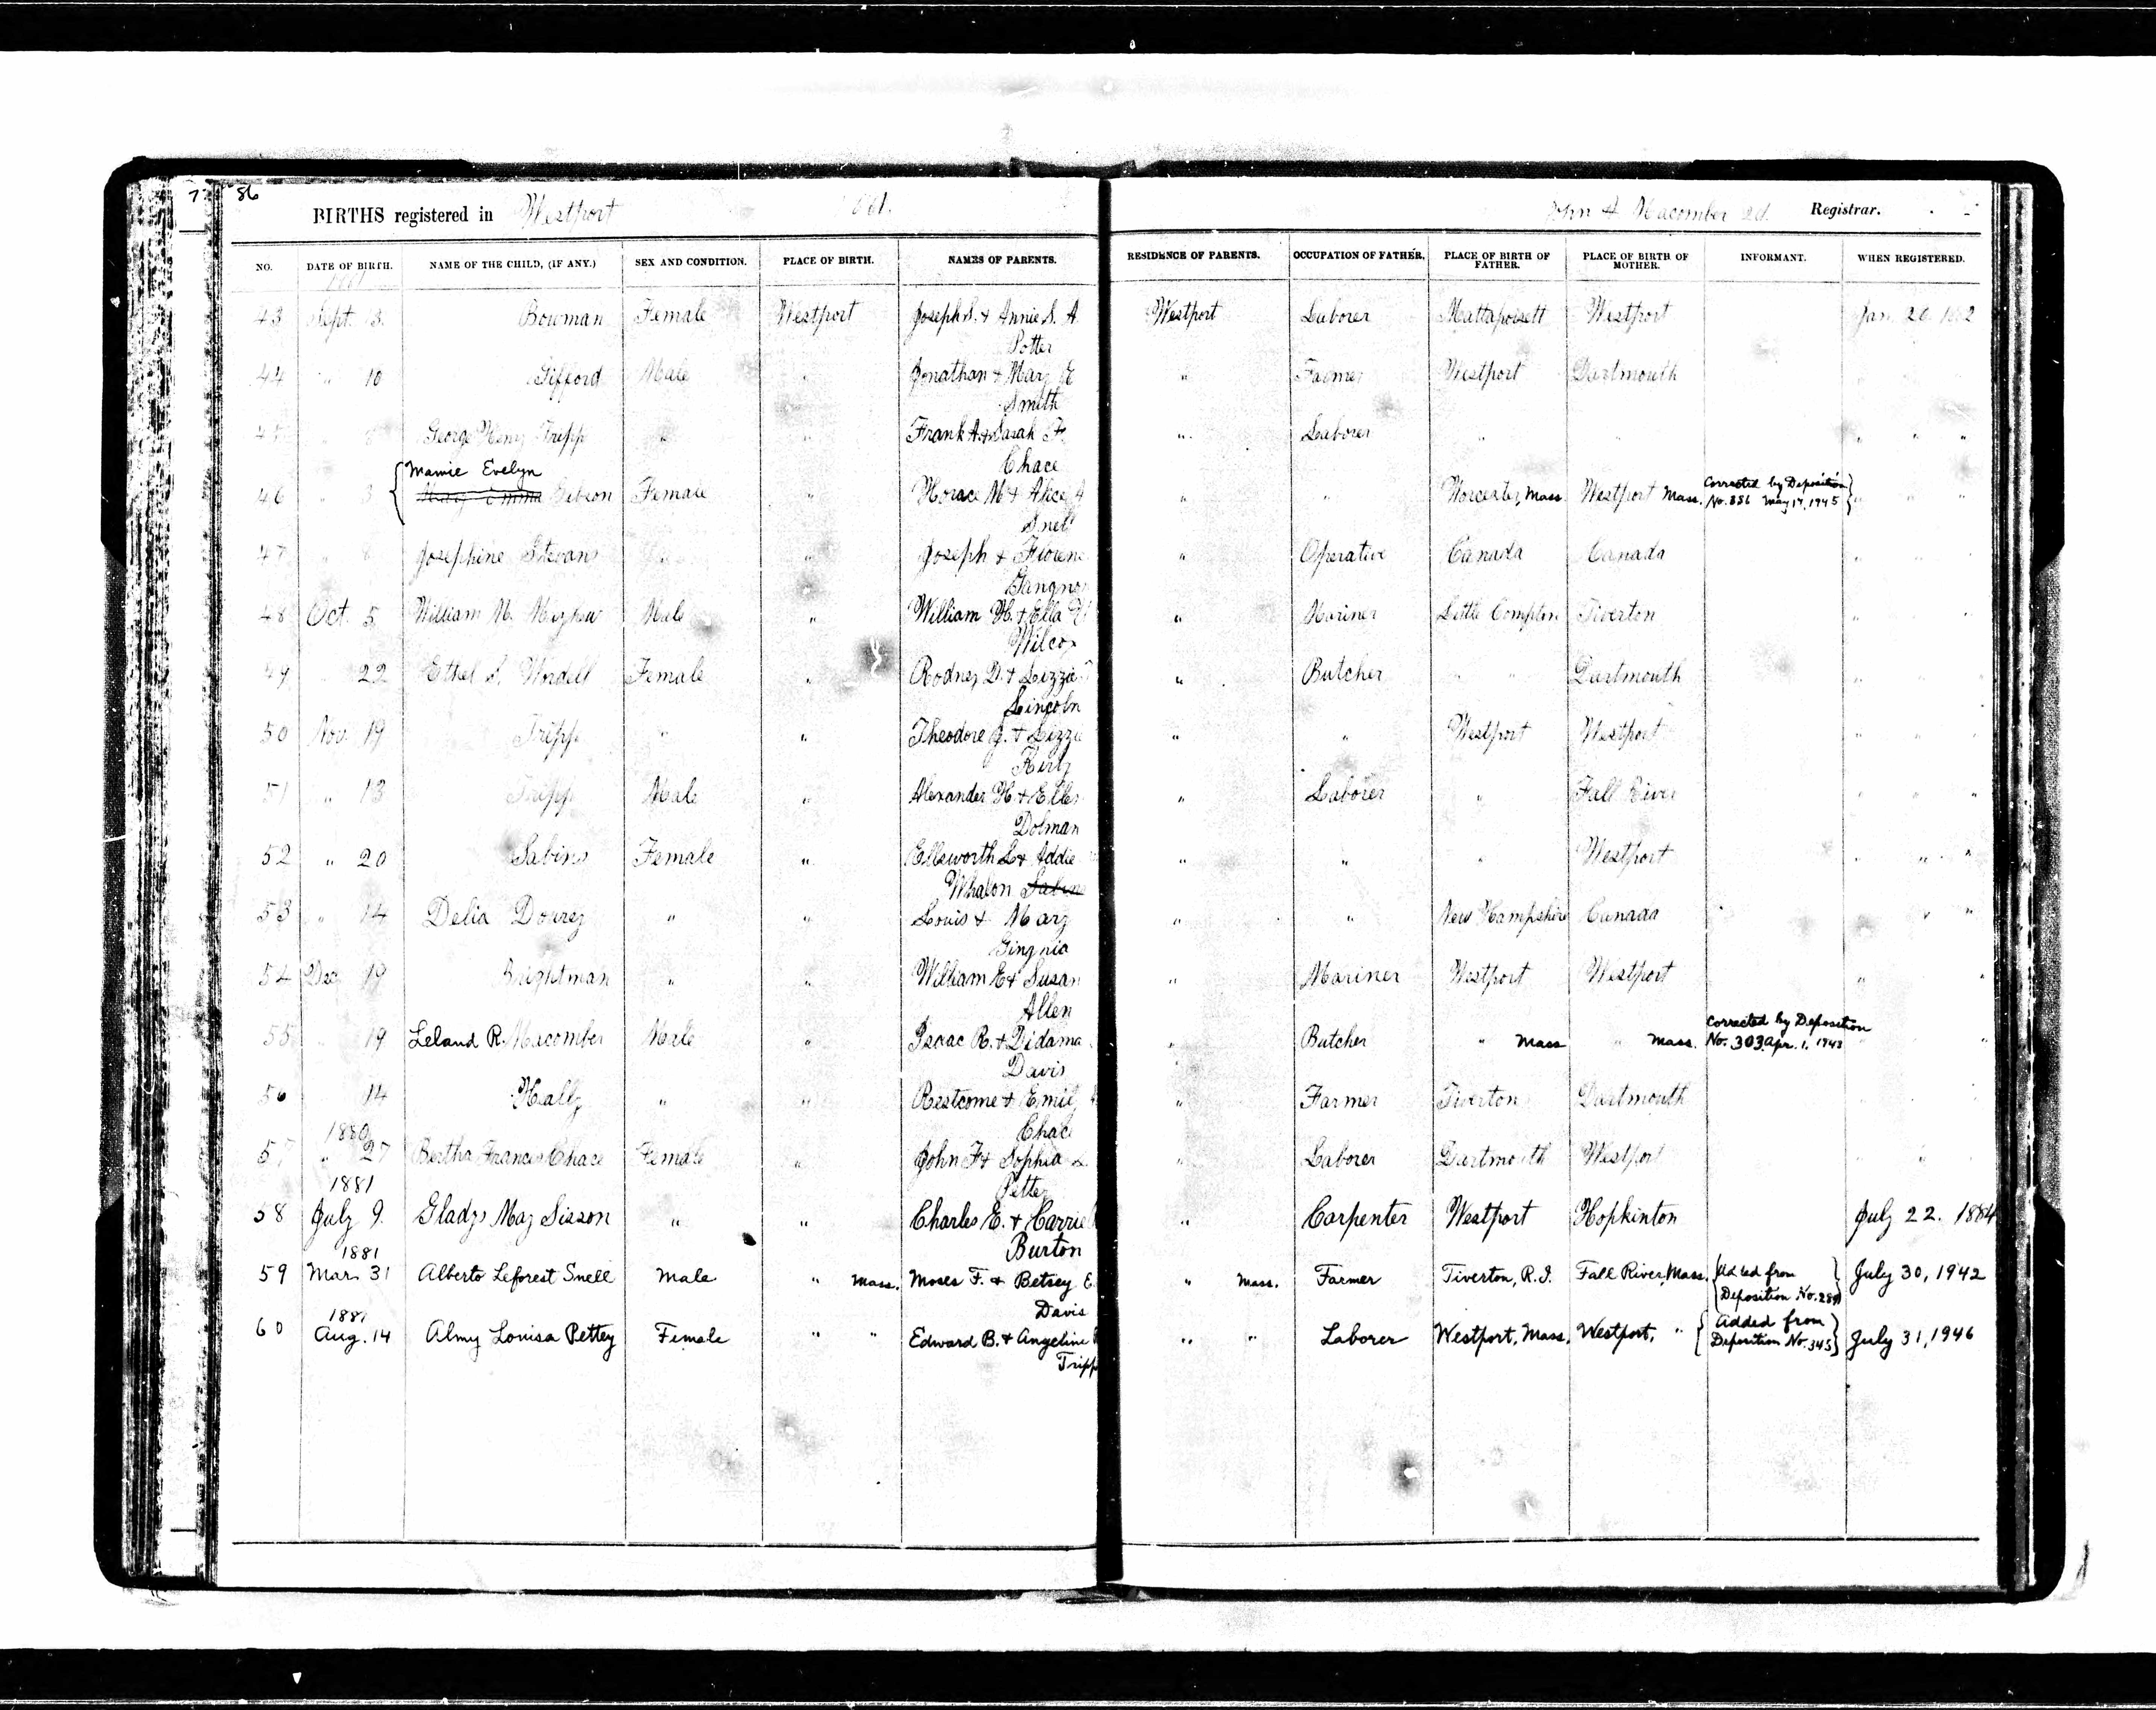 86
BIRTHS registered in Westport
John A Macomber 2d. Registrar.
NO. DATE OF BIRTH. NAME OF THE CHILD, (IF ANY.) SEX AND CONDITION. PLACE OF BIRTH. NAMES OF PARENTS. RESIDENCE OF PARENTS. OCCUPATION OF FATHER. PLACE OF BIRTH OF FATHER. PLACE OF BIRTH OF MOTHER. INFORMANT. WHEN REGISTERED.
43 Sept. 3. Bowman Female Westport Joseph S. & Annie S. A Westport Laborer Mattapoisett Westport Jan. 20 1882
Potter
44 " 10 Gifford Male " Jonathan & Mary E " Farmer Westport Dartmouth
Smith
45 George Henry Tripp " " Frank A. & Sarah F. " Laborer " " " " "
Chace
Mamie Evelyn
Corrected by Deposition
46 " 3 Gibson Female " Horace M & Alice A " " Worcester, Mass. Westport Mass. No. 336 May 17, 1945 " " "
Snell
47 " Josephine Stevans " " Joseph & " Operative Canada Canada " "
48 Oct. 5 William M. Mayhew Male " William H. & Ella " Mariner Little Compton Tiverton " "
Wilcox
49 22 Ethel S. Wordell Female " Rodney D. & Lizzie " Butcher " " Dartmouth " "
Lincoln
50 Nov 19 Tripp " " Theodore & Lizzie " " Westport Westport " "
Kirby
51 " 13 Tripp Male " Alexander H. & Ellen " Laborer " Fall River " " "
Dolman
52 " 20 Sabins Female " Ellsworth L & Addie " " " Westport " " "
Whalon Sabins
53 " 14 Delia " " Louis & Mary " " New Hampshire Canada " "
54 Dec 19 Brightman " " William E & Susan " Mariner Westport Westport " "
Allen
Corrected by Deposition
55 " 19 Leland R. Macomber Male " Isaac R. & Didama " Butcher " Mass " Mass. No. 303 Apr. 1, 1943 " "
Davis
56 14 " " Restcome & Emily " Farmer Tiverton Dartmouth
Chace
1880
57 " 27 Bertha Frances Chace Female " John F & Sophia " Laborer Dartmouth Westport " "
1881
58 July 9. Gladys May Sisson " " Charles E. & Carrie " Carpenter Westport Hopkinton July 22. 1884
Burton
1881
59 Mar. 31 Alberto Leforest Snell Male " Mass. Moses F. & Betsey E. " Mass. Farmer Tiverton, R.I. Fall River, Mass. Added from July 30, 1942
Deposition No. 289
Davis
1881
Added from
60 Aug. 14 Almy Louisa Pettey Female " " Edward B. & Angeline " " Laborer Westport, Mass. Westport, " Deposition No. 345 July 31, 1946
Tripp